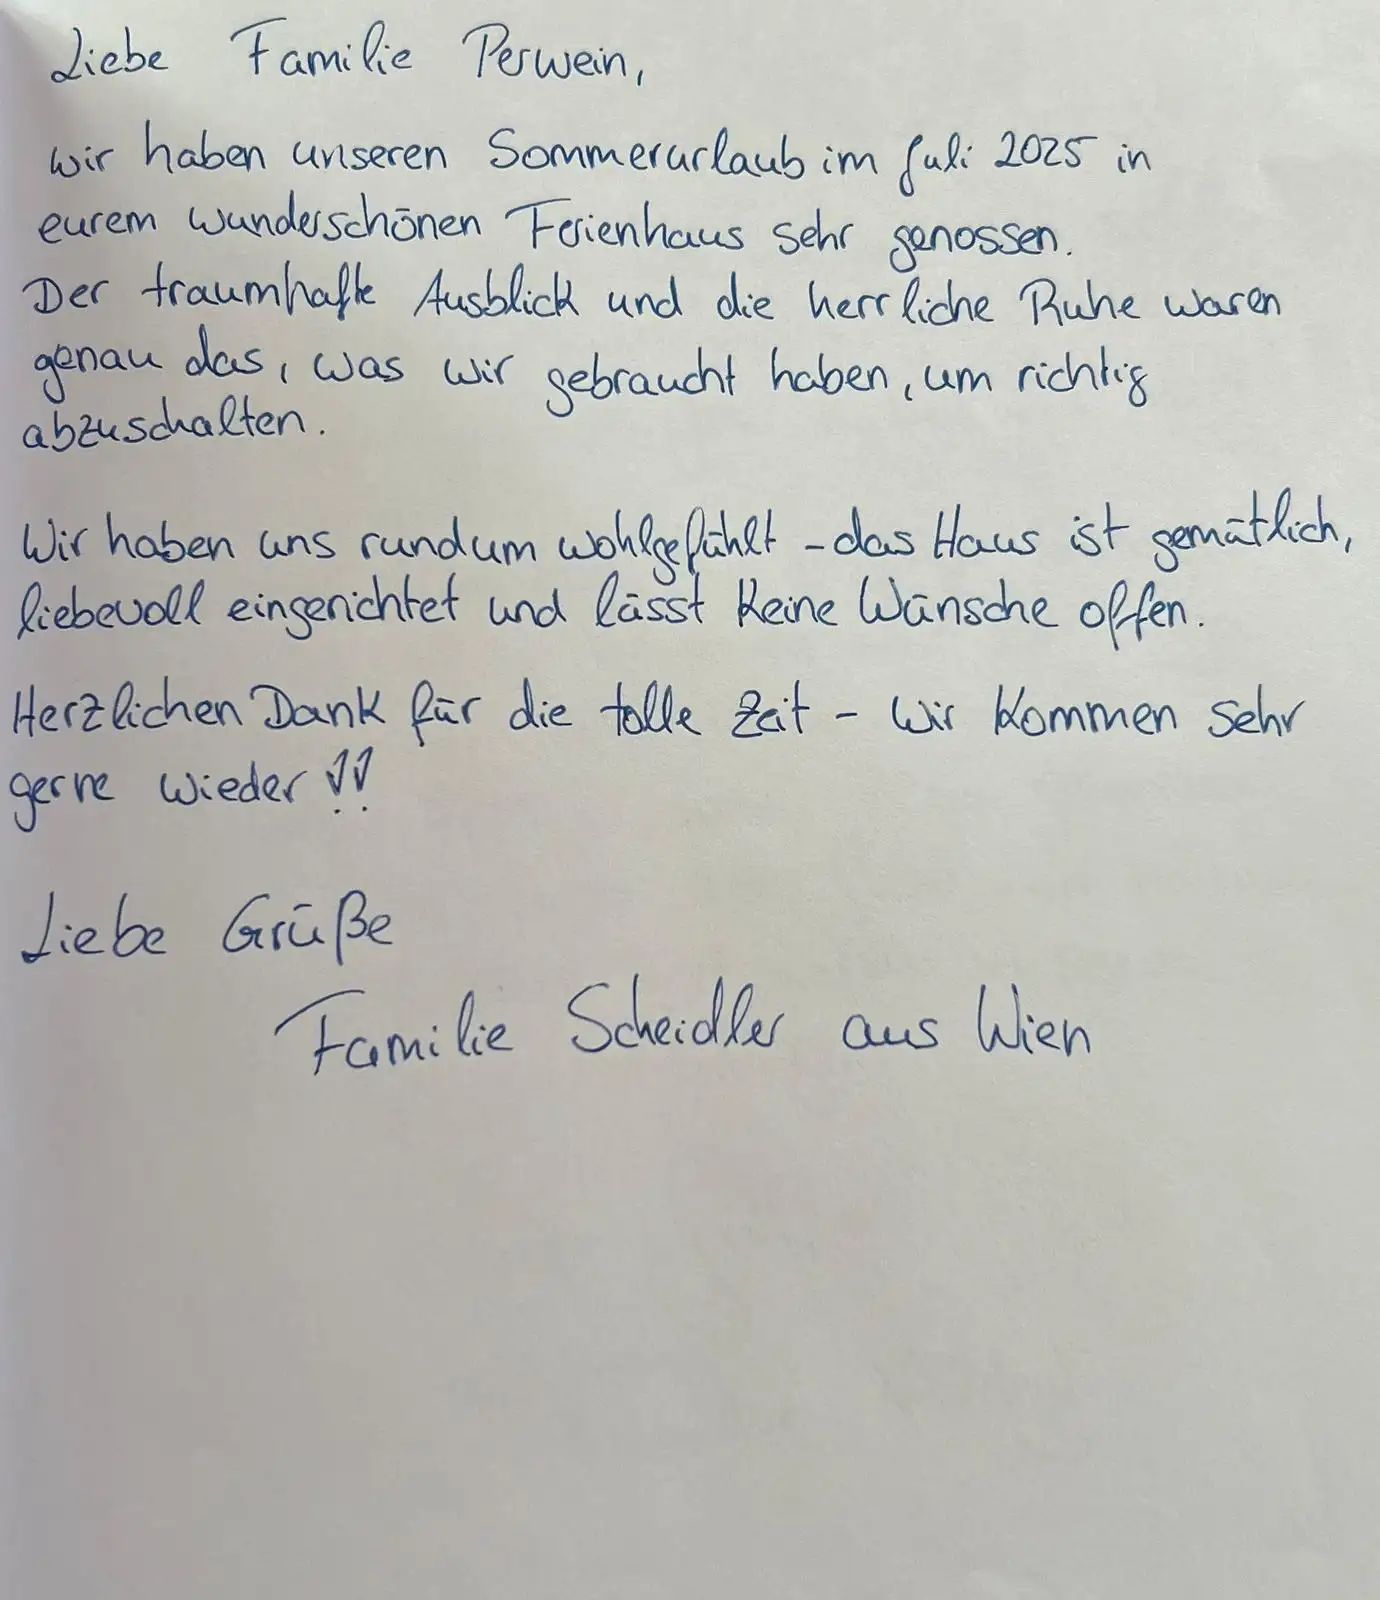 Liebe Familie Perwein,
wir haben unseren Sommerurlaub im Juli 2025 in
eurem wunderschönen Ferienhaus sehr genossen.
Der traumhafte Ausblick und die herrliche Ruhe waren
genau das, was wir gebraucht haben, um richtig
abzuschalten.
Wir haben uns rundum wohlgefühlt - das Haus ist gemütlich,
liebevoll eingerichtet und lässt keine Wünsche offen.
Herzlichen Dank für die tolle Zeit - wir kommen sehr
gerne wieder!!
Liebe Grüße
Familie Scheidler aus Wien